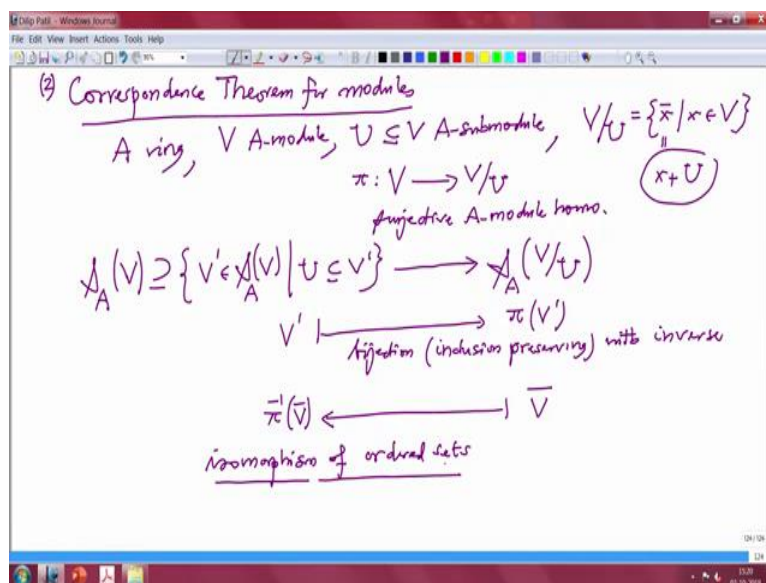 Dilip Patil - Windows Journal
File Edit View Insert Actions Tools Help
(2) Correspondence Theorem for modules
A ring, V A-module, U ⊆ V A-submodule, V/U = {x̄ | x ∈ V}
॥
x + U
π : V ⟶ V/U
surjective A-module homo.
𝒮_A(V) ⊇ {V' ∈ 𝒮_A(V) | U ⊆ V'} ⟶ 𝒮_A(V/U)
V' ⟼ π(V')
bijection (inclusion preserving) with inverse
π⁻¹(V̄) ⟻ V̄
isomorphism of ordered sets
124/124
124
15:20